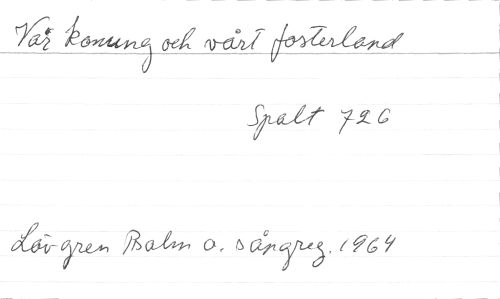 Vår konung och vårt fosterland
Spalt 726
Lövgren Psalm o. sångreg. 1964